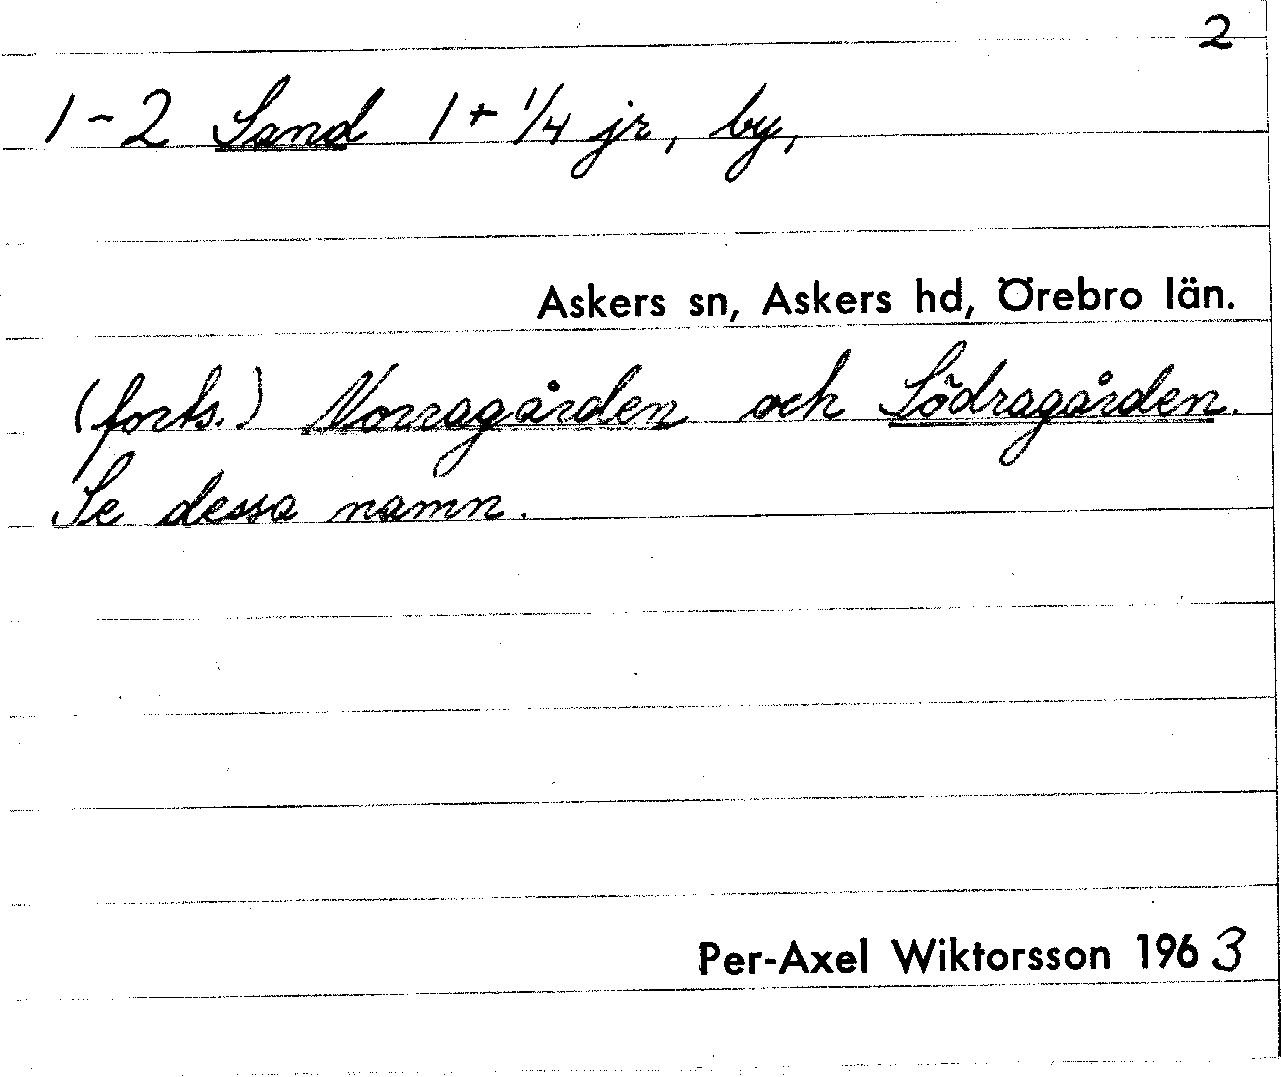 2
1-2 Sand 1 + 1/4 jr, by,
Askers sn, Askers hd, Örebro län.
(forts.) Norragården och Södragården.
Se dessa namn.
Per-Axel Wiktorsson 1963